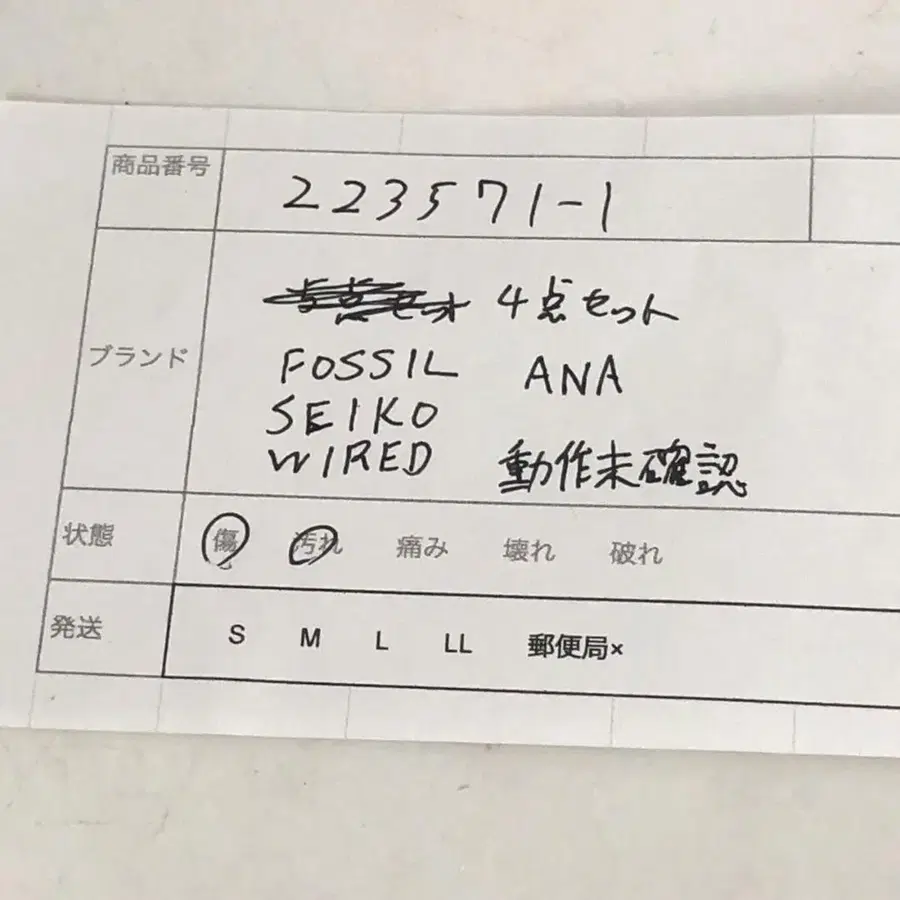 商品番号 223571-1
4点セット
ブランド FOSSIL ANA
SEIKO
WIRED 動作未確認
状態 傷 汚れ 痛み 壊れ 破れ
発送 S M L LL 郵便局×